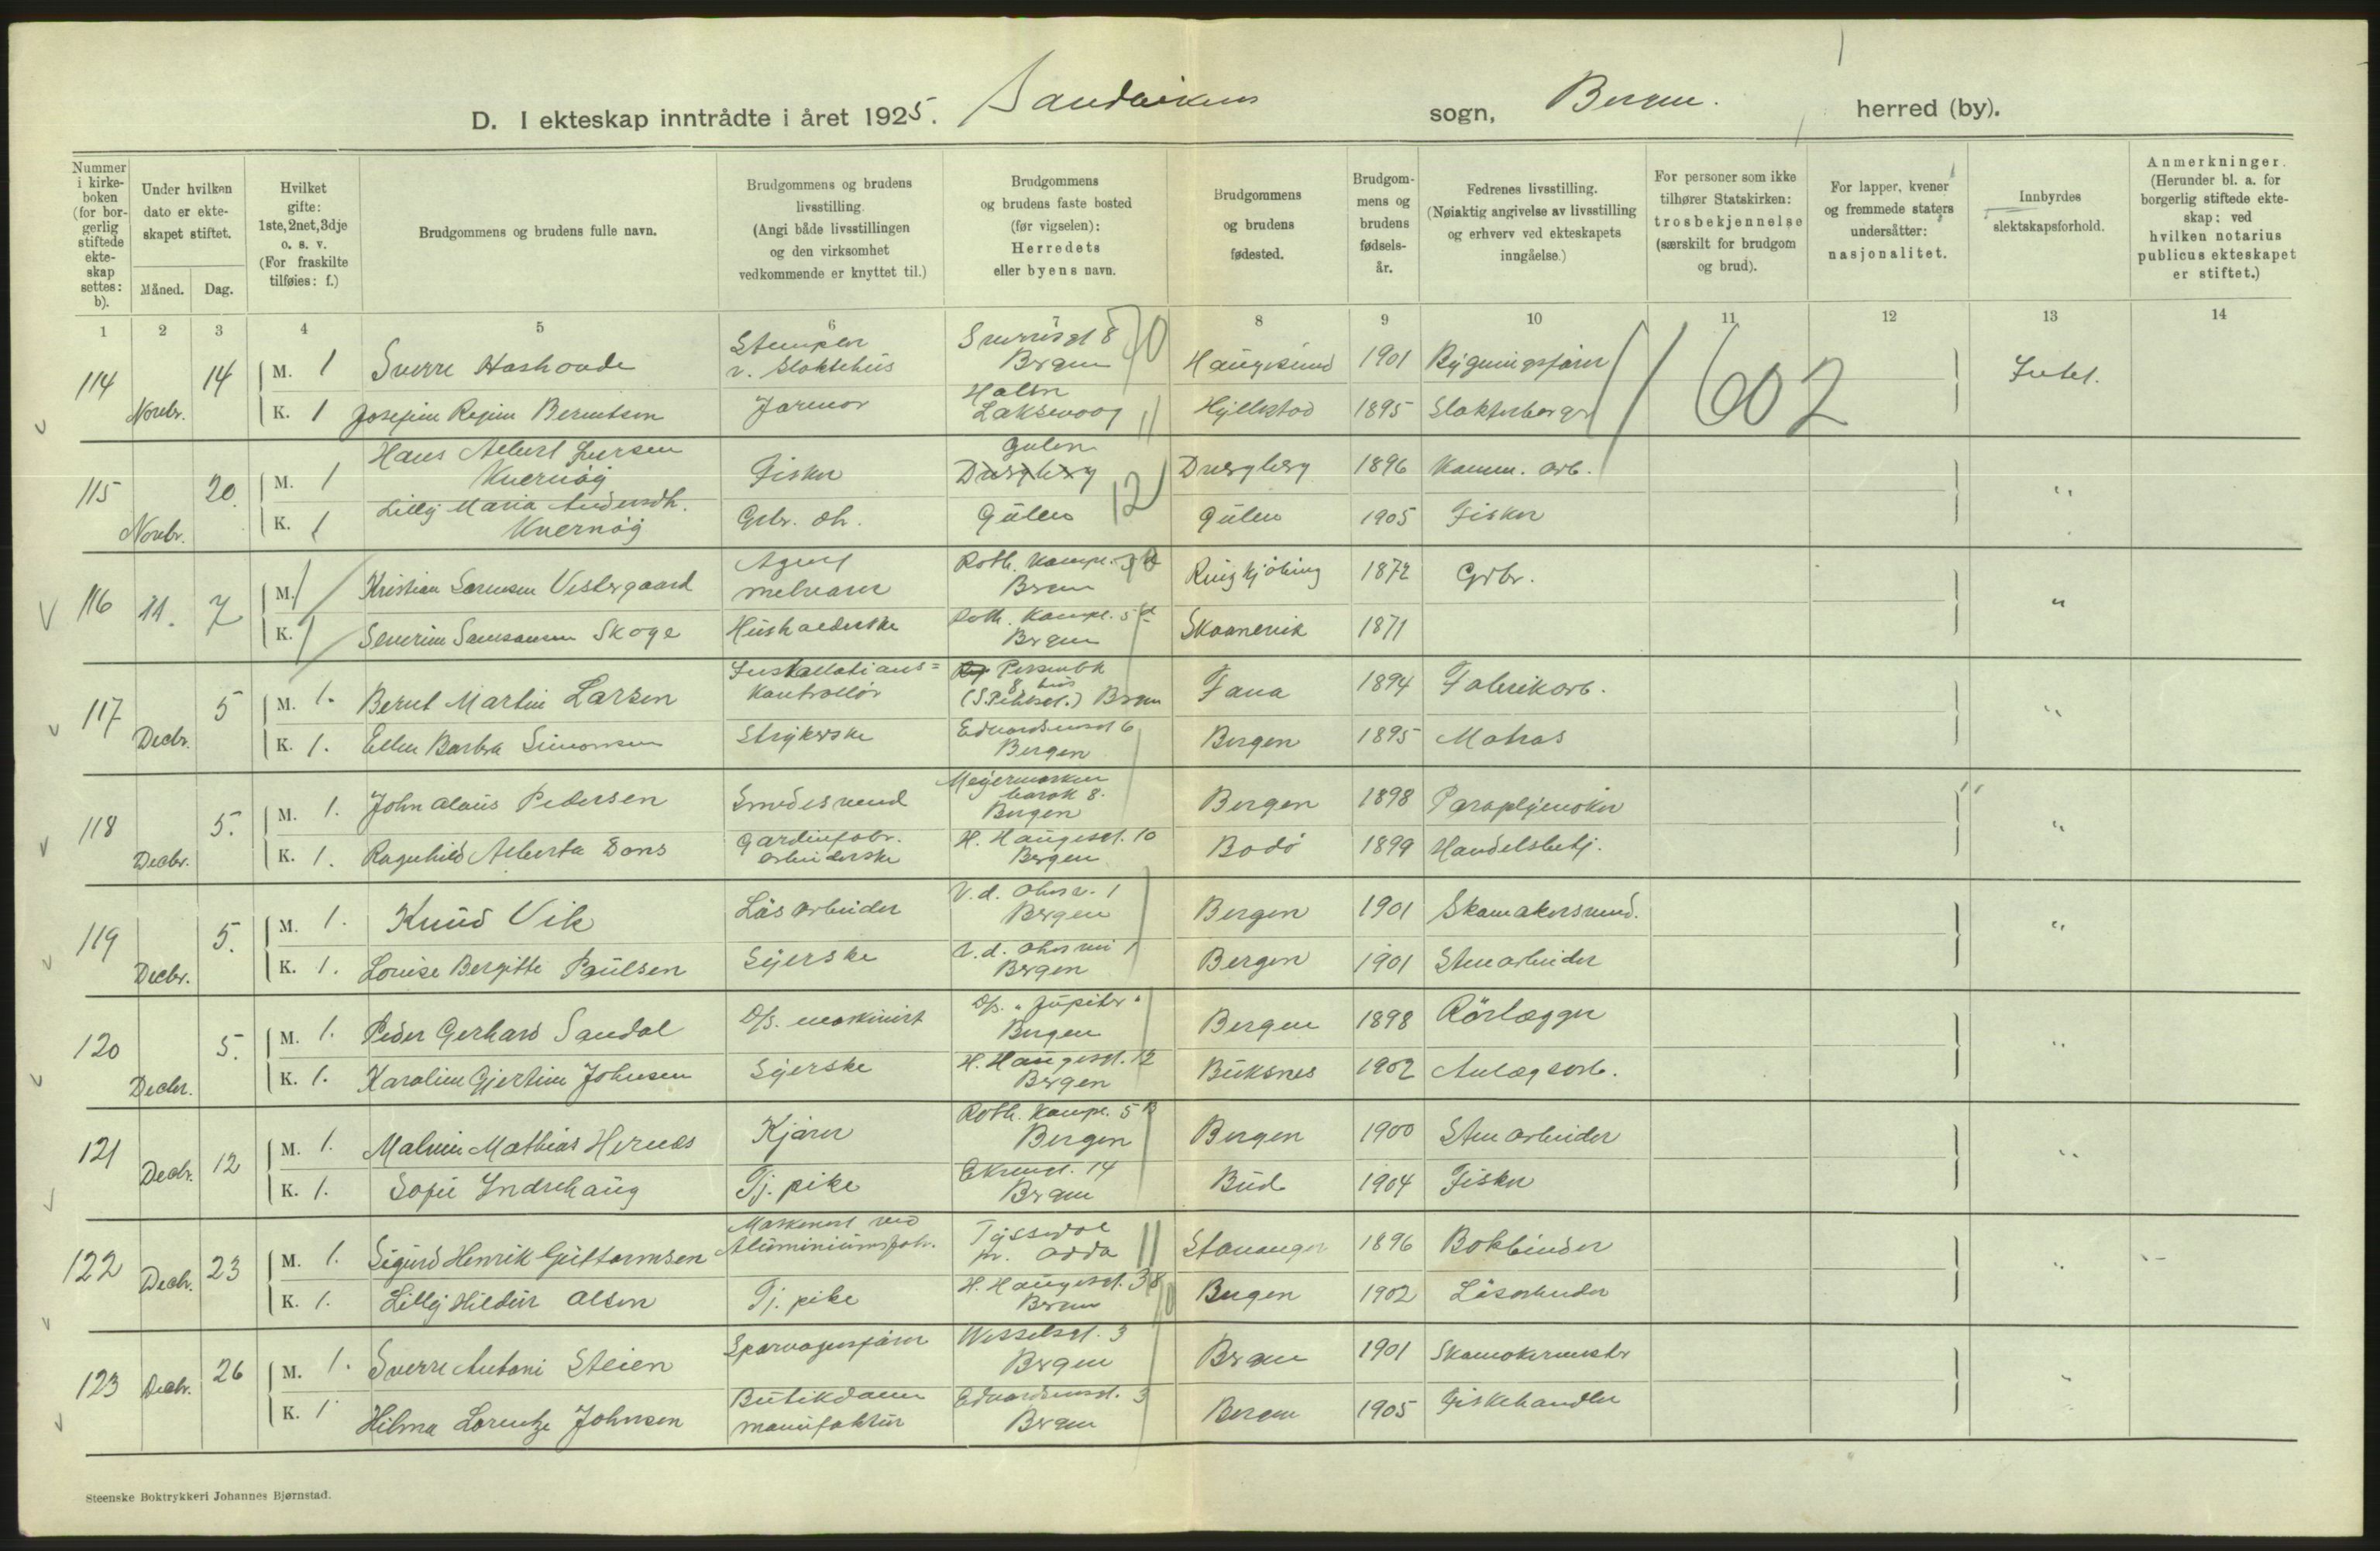 D. I ekteskap inntrådte i året 1925. Sandvikens sogn, Bergen. herred (by).
Nummer i kirke-boken (for bor-gerlig stiftede ekte-skap settes: b).
Under hvilken dato er ekte-skapet stiftet.
Måned. Dag.
Hvilket gifte: 1ste, 2net, 3dje o. s. v. (For fraskilte tilføies: f.)
Brudgommens og brudens fulle navn.
Brudgommens og brudens livsstilling. (Angi både livsstillingen og den virksomhet vedkommende er knyttet til.)
Brudgommens og brudens faste bosted (før vigselen): Herredets eller byens navn.
Brudgommens og brudens fødested.
Brudgom-mens og brudens fødsels-år.
Fedrenes livsstilling. (Nøiaktig angivelse av livsstilling og erhverv ved ekteskapets inngåelse.)
For personer som ikke tilhører Statskirken: trosbekjennelse (særskilt for brudgom og brud).
For lapper, kvener og fremmede staters undersåtter: nasjonalitet.
Innbyrdes slektskapsforhold.
Anmerkninger. (Herunder bl. a. for borgerlig stiftede ekte-skap: ved hvilken notarius publicus ekteskapet er stiftet.)
1 2 3 4 5 6 7 8 9 10 11 12 13 14
114 Novbr. 14 M. 1 Sverre v. Slaktehus Sverresgt 8 Bergen Haugesund 1901 Intet.
K. 1 Josefine Regine Berntsen Laksevaag Hyllestad 1895
1602
115 Novbr. 20. M. 1 Hans Albert Larsen Kvernøy Fisker Gulen Dvergberg Dvergberg 1896 Komm. arb. "
K. 1 Lilly Maria Andersdtr. Kvernøy Grbr. dtr. Gulen 12 Gulen 1905 Fisker
116 11. 7 M. 1 Kristian Sørensen Vestergaard Agent Roth. Kompl. Bergen Ringkjøbing 1872 Grbr. "
K. 1 Severine Samsonsen Skoge Husholderske Roth. Kompl. 5 d Bergen Skaanevik 1871
117 Decbr. 5 M. 1. Bernt Martin Larsen Installations= kontrollør Bergen Fana 1894 Fabrikarb. "
K. 1. Ellen Barbra Simonsen Strykerske Edvardsensgt 6 Bergen Bergen 1895 Matros
118 Decbr. 5. M. 1. John Olaus Pedersen Smedesvend Meyermarken barak 8. Bergen Bergen 1898 Paraplymaker "
K. 1. Ragnhild Alberta Dons Gardinfabr. arbeiderske H. Haugesgt. 10 Bergen Bodø 1899 Handelsbetj.
119 Decbr. 5. M. 1. Knud Vik Løsarbeider Bergen Bergen 1901 Skomakersvend. "
K. 1. Louise Bergitte Paulsen Syerske Bergen Bergen 1901 Stenarbeider
120 Decbr. 5. M. 1. Peder Gerhard Sandal D/s. maskinist D/s. "Jupiter" Bergen Bergen 1898 Rørlægger "
K. 1. Karoline Gjertine Johnsen Syerske H. Haugesgt. 12 Bergen Buksnes 1902 Anlægsarb.
121 Decbr. 12 M. 1. Malvin Mathias Hernes Kjører Roth. Kompl. 5 B Bergen Bergen 1900 Stenarbeider "
K. 1. Sofie Yndrehaug Tj. pike Ekrengt. 14 Bergen Bud 1904 Fisker
122 Decbr. 23 M. 1. Sigurd Henrik Guttormsen Maskinist ved Aluminiumsfabr. Tyssedal pr. Odda 11 Stavanger 1896 Bokbinder "
K. 1. Lilly Hildur Olsen Tj. pike H. Haugesgt. 38 Bergen Bergen 1902 Løsarbeider
123 Decbr. 26 M. 1. Sverre Antoni Steien Sporvognsfører Wesselsgt. 3 Bergen Bergen 1901 Skomakermester "
K. 1. Hilma Lorentze Johnsen Butikdame manufaktur Edvardsensgt. 3 Bergen Bergen 1905 Fiskehandler
Steenske Boktrykkeri Johannes Bjørnstad.